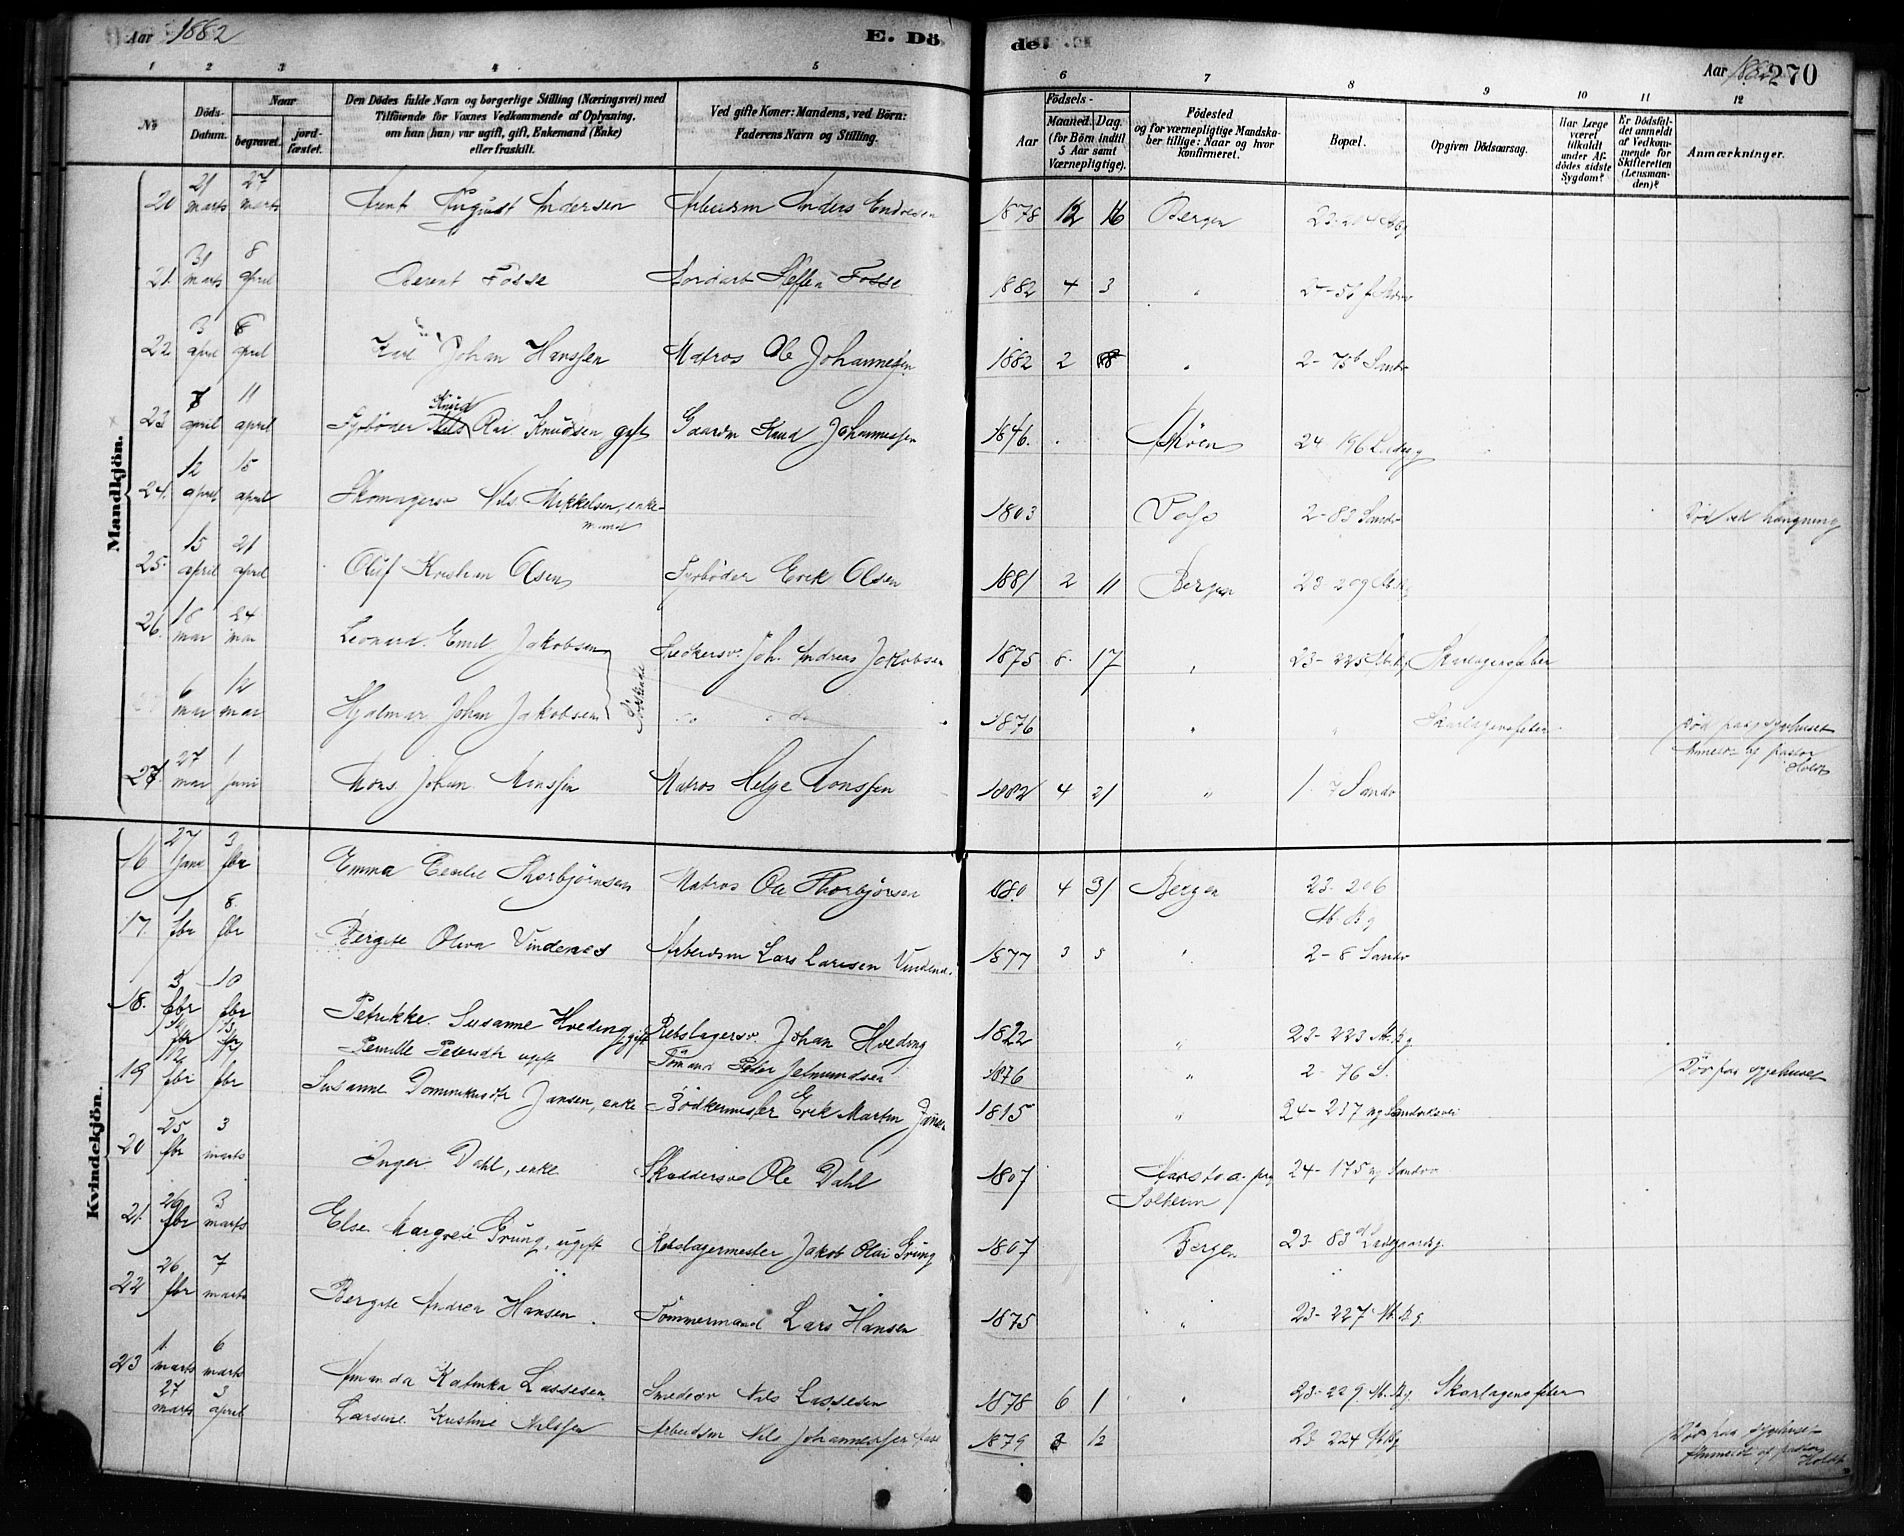 Aar 1882
E. Dö
de.
Aar 1882.
270
1 2 3 4 5 6 7 8 9 10 11 12
No
Döds-Datum.
Naar
begravet.
jord-fæstet.
Den Dödes fulde Navn og borgerlige Stilling (Næringsvei) med
Tilföiende for Voxnes Vedkommende af Oplysning,
om han (hun) var ugift, gift, Enkemand (Enke)
eller fraskilt.
Ved gifte Koner: Mandens, ved Börn:
Faderens Navn og Stilling.
Födsels-
Aar
Maaned. Dag.
(for Börn indtil
5 Aar samt
Værnepligtige).
Födested
og for værnepligtige Mandska-
ber tillige: Naar og hvor
konfirmeret.
Bopæl.
Opgiven Dödsaarsag.
Har Læge
været
tilkaldt
under Af-
dödes sidste
Sygdom?
Er Dödsfal-
det anmeldt
af Vedkom-
mende for
Skifteretten
(Lensman-
den)?
Anmærkninger.
Mandkjön.
20 21 marts 27 marts August Andersen Arbeidsm Anders Endresen 1878 12 16 Bergen
21. 31 marts 8 april Berent Fosse Steffen Fosse 1882 4 3 "
22 3 april 8 april Karl Johan Hanssen Matros Ole Johannesen 1882 2 8 " 2-75b Sandv
23 7 april 11 april Fyrbøder Knud Rai Knudsen, gift Gaardm Knud Johannessen 1846. Askøen 24 196 Ladeg
24. 12 april 15 april Skomagersv Nils Mikkelsen, enke-
mand 1803 Voss 2-83 Sandv Død ved hængning
25. 15 april 21 april Oluf Kristian Olsen Fyrbøder Erik Olsen 1881 2 11 Bergen 23-209 M.Bg
26. 18 mai 24 mai Leonard Emil Jakobsen Joh. Andreas Jakobsen 1875 8. 17 " 23-225 M.Bg Skarlagensfeber
6 mai 12 mai Hjalmar Johan Jakobsen Søskende do 1876 " " Skarlagensfeber Død paa sygehuset
Anmeldt af pastor
Holdt
27. 27 mai 1 juni Mons Johan Monssen Matros Helge Monssen 1882 4 21 " 1-7 Sandv
Kvindekjön.
16 27 janr 3 fbr Emma Cecilie Thorbjörnsen Matros Ole Thorbjörnsen 1880 4 31 Bergen 23-206
M.Bg
17. 1 fbr 8. fbr Bergite Oliva Vindenes Arbeidsm Lars Larssen Vindenes 1877 3 5 " 2-8 Sandv
18. 3 fbr 10 fbr Petrikke Susanne Hveding, gift Rebslagersv. Johan Hveding 1822 " 23-223 M.Bg
Pernille Petersdtr ugift Tömmd Peter Jetmundsen 1876 " 2-76 S. Død paa sygehuset
19 12 fbr 17 fbr Susanne Dominikusdtr Jansen, enke Bödkermester Erik Martin Jansen 1815 " 24-237 ny Sandviksvei
20 25 fbr 3 marts Inger Dahl, enke Skræddersv Ole Dahl 1807 24-175 ny Sandvv
Solheim
21. 26 fbr 3 marts Else Margrete Grung, ugift Rebslagermester Jakob Olai Grung 1807 Bergen 23-83d Ladegaardsg.
22 26 fbr 7 marts Bergite Andrea Hansen. Tömmermand Lars Hansen 1875 " 23-227 M.Bg
23 1 marts 6 marts Amanda Katinka Lassesen Smedesv Nils Lassesen 1878 6 1 " 23-229 M.Bg. Skarlagensfeber
27 marts 3 april Larsine Kristine Nilssen Arbeidsm Nils Johannessen 1879 8 12 23-224 M.Bg Død paa sygehuset
Anmeldt af pastor
Holdt